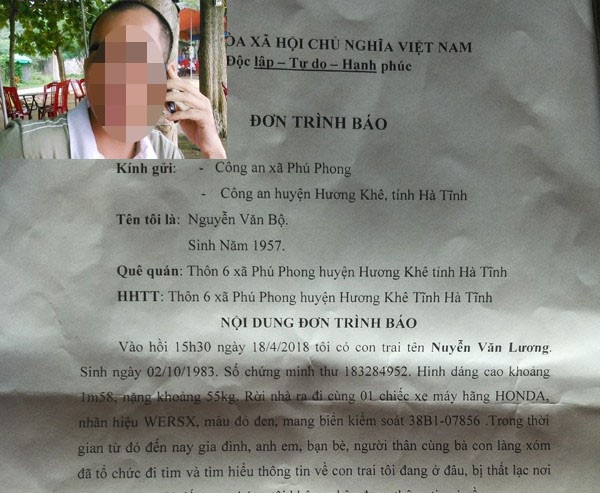 ÒA XÃ HỘI CHỦ NGHĨA VIỆT NAM
Độc lập – Tự do – Hạnh phúc
ĐƠN TRÌNH BÁO
Kính gửi: - Công an xã Phú Phong
- Công an huyện Hương Khê, tỉnh Hà Tĩnh
Tên tôi là: Nguyễn Văn Bộ.
Sinh Năm 1957.
Quê quán: Thôn 6 xã Phú Phong huyện Hương Khê tỉnh Hà Tĩnh
HHTT: Thôn 6 xã Phú Phong huyện Hương Khê Tỉnh Hà Tĩnh
NỘI DUNG ĐƠN TRÌNH BÁO
Vào hồi 15h30 ngày 18/4/2018 tôi có con trai tên Nuyễn Văn Lương.
Sinh ngày 02/10/1983. Số chứng minh thư 183284952. Hình dáng cao khoảng
1m58, nặng khoảng 55kg. Rời nhà ra đi cùng 01 chiếc xe máy hãng HONDA,
nhãn hiệu WERSX, màu đỏ đen, mang biển kiểm soát 38B1-07856 .Trong thời
gian từ đó đến nay gia đình, anh em, bạn bè, người thân cùng bà con làng xóm
đã tổ chức đi tìm và tìm hiểu thông tin về con trai tôi đang ở đâu, bị thất lạc nơi